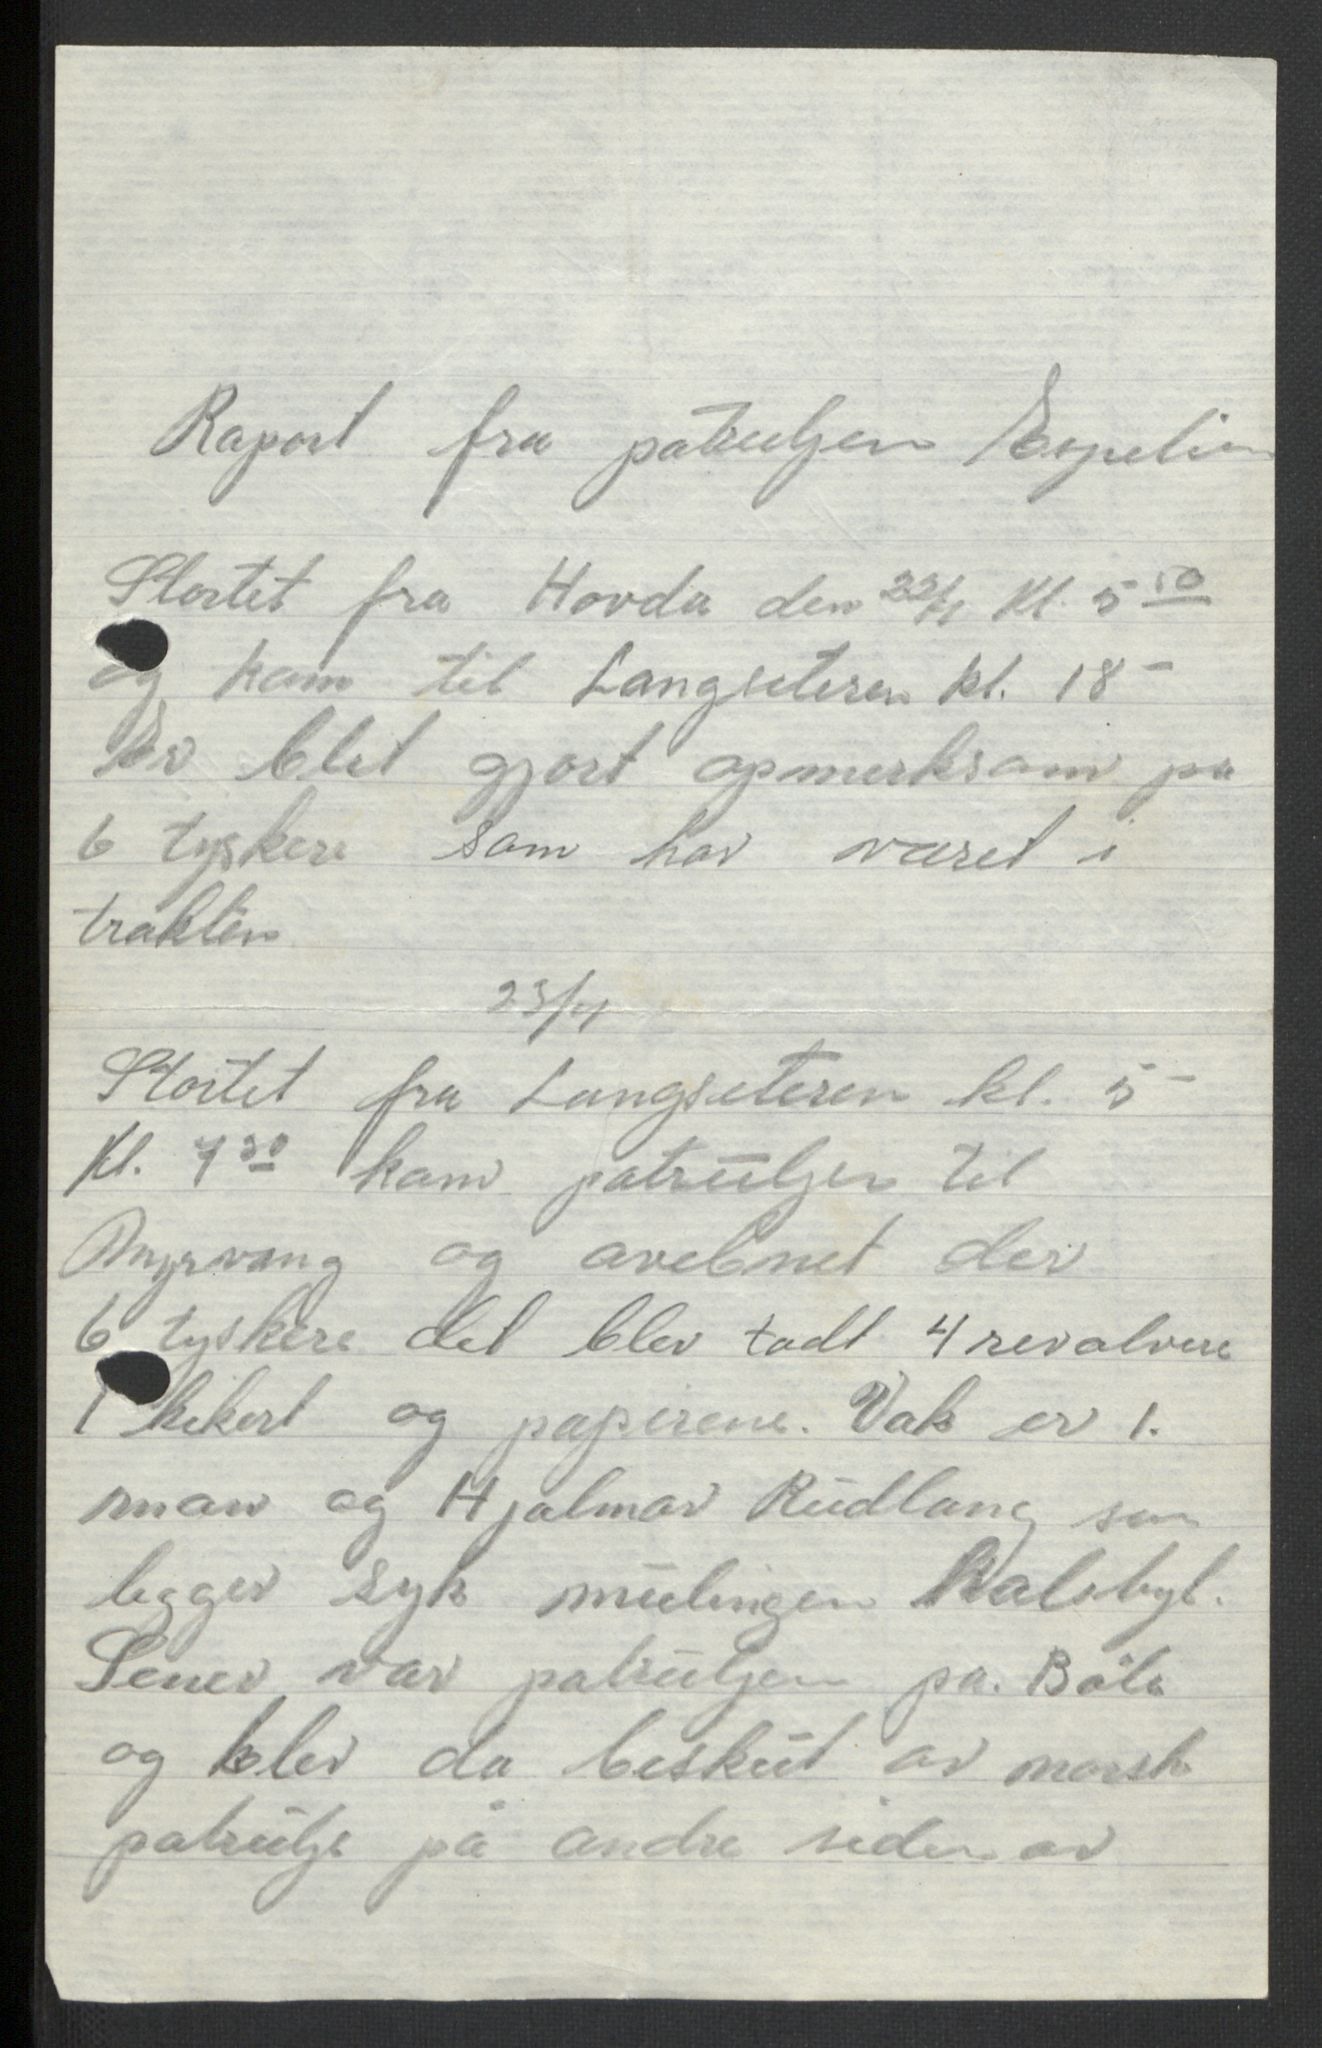 Raport fra patruljen Espelien
Startet fra Hovda den 22/4 Kl. 5 50
og kom til Langseteren kl. 18 -
Er blet gjort opmerksom pa
6 tyskere som har væred i
trakten
23/4
Startet fra Langseteren kl. 5 -
Kl. 7 30 kom patruljen til
Myrvang og avebnet der
6 tyskere det blev tadt 4 revolvere
1 kikert og papirene. Vak er 1.
man og Hjalmar Rudlang som
legger syk
Sener var patruljen pa. Böle
og blev da beskut av norsk
patrulje på andre siden av